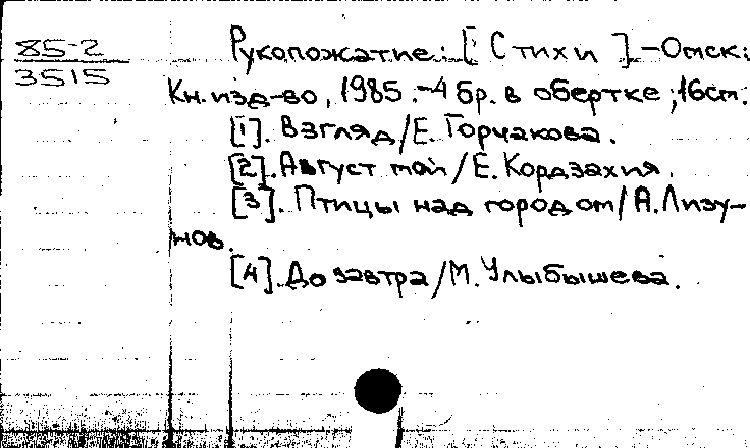 85-2
3515
Рукопожатие: [Стихи]-Омск:
Кн. изд-во, 1985.-4 бр. в обертке; 16см.
[1]. Взгляд/Е. Горчакова.
[2]. Август мой/Е. Кордзахия.
[3]. Птицы над городом/А. Лизу-
нов.
[4]. До завтра/М. Улыбышева.